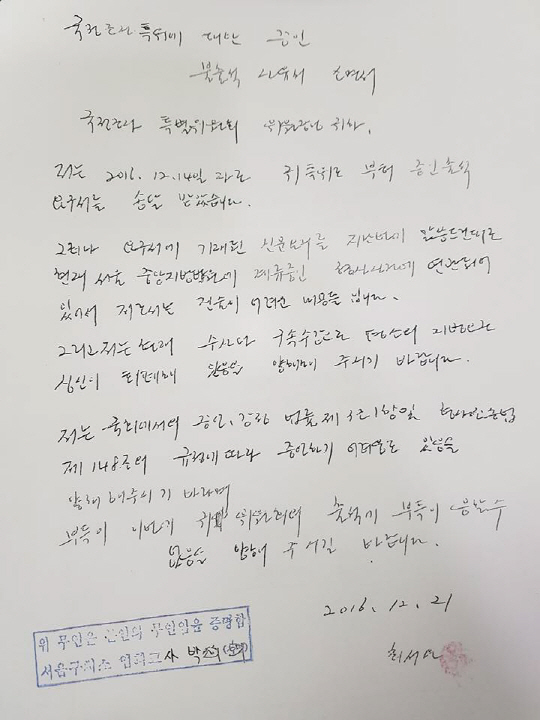 국정조사 특위에 대한 증인
불출석 사유서 소명서
국정조사 특별위원회 위원장님 귀하.
저는 2016. 12. 14일 귀 특위로 부터 증인출석
요구서를 송달 받았습니다.
그러나 요구서에 기재된 신문요지를
현재 서울 중앙지방법원에 계류중인 형사사건에 연관되어
있어서 저로서는 진술이 어려운 내용들 입니다.
그리고 저는 현재 수사와 구속수감으로 평소의 지병으로
심신이 피폐해 있음을 양해해 주시기 바랍니다.
저는 국회에서의 증언, 감정 법률 제 3조 1항 및 형사소송법
제 148조의 규정에 따라 증언하기 어려움이 있음을
양해 해주시기 바라며
부득이 이번에 귀 위원회의 출석에 부득이 응할수
없음을 양해 주시길 바랍니다.
2016. 12. 21
최서원
위 무인은 본인의 무인임을 증명함
서울구치소